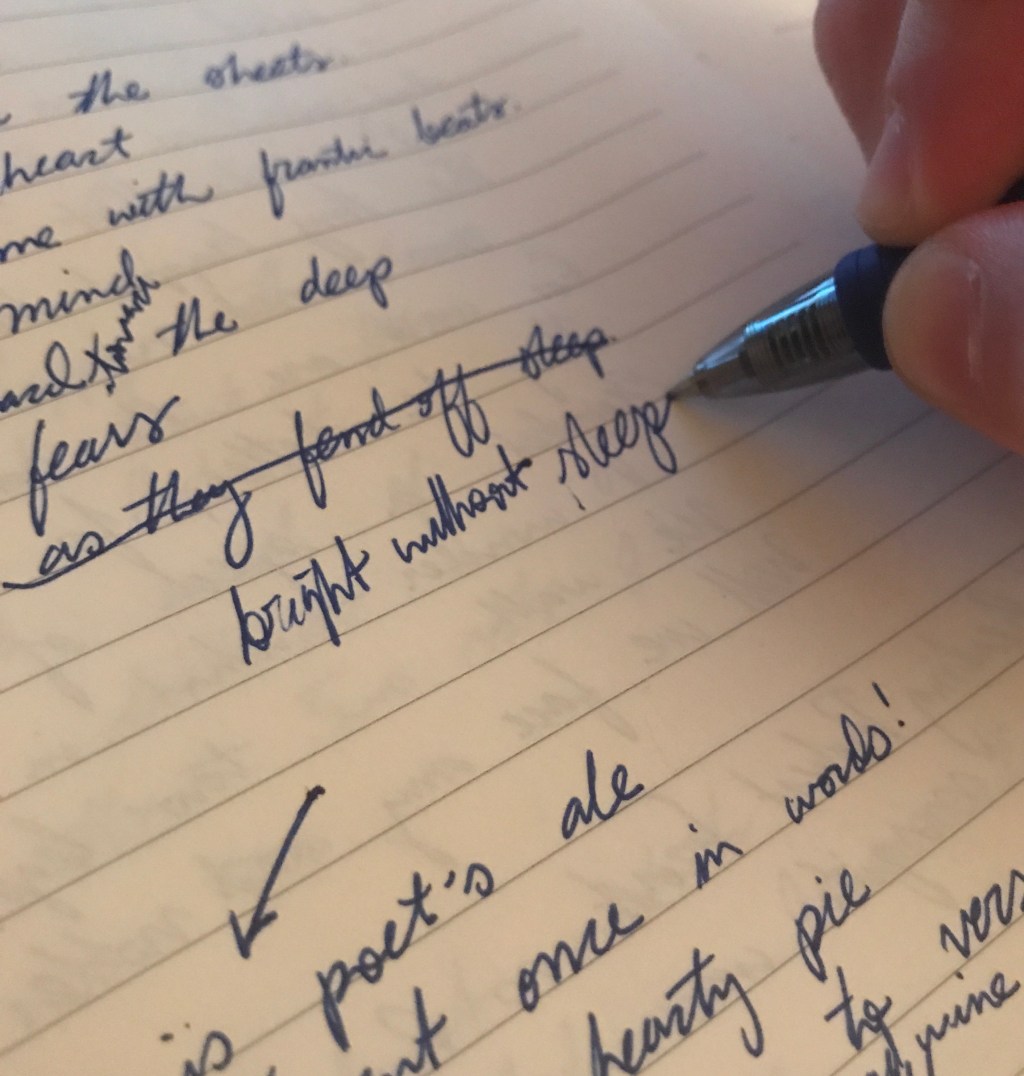 the sheets.
heart
me with frantic beats.
mind
the deep
fears
as they fend off sleep.
bright without sleep
is poet's ale
once in words!
hearty pie
to vers
wine